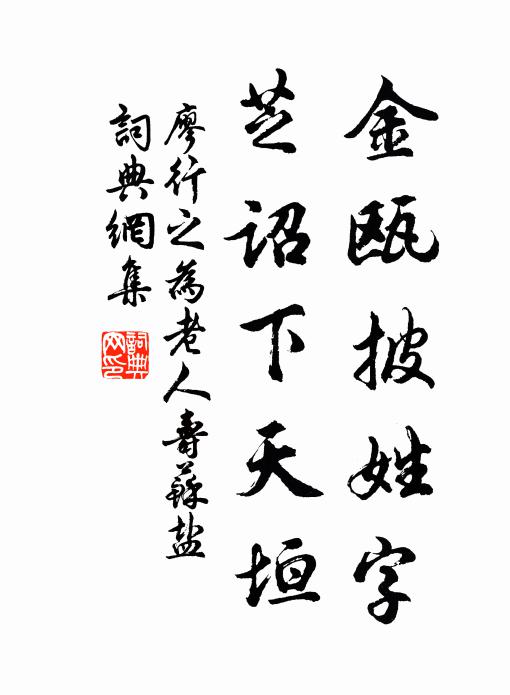 金瓯披姓字
芝诏下天垣
廖行之為老人壽蘇盐
詞典網集
詞典网印